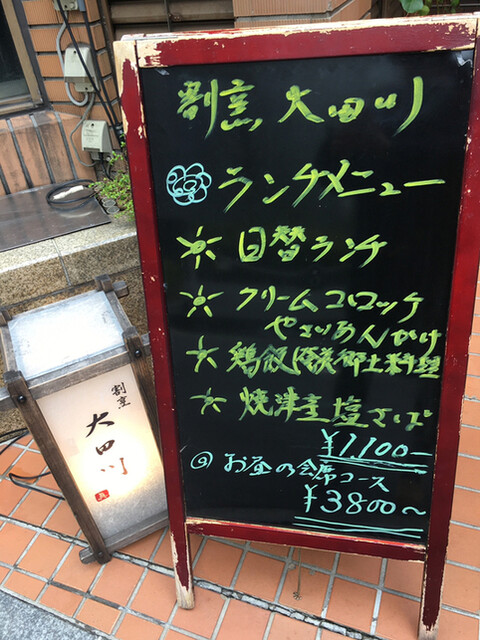 割烹 大田川
ランチメニュー
日替ランチ
クリームコロッケ
やさいあんかけ
鶏飯 奄美郷土料理
焼津産 塩さば
¥1,100ー
お昼の会席コース
¥3800〜
割烹
大田川